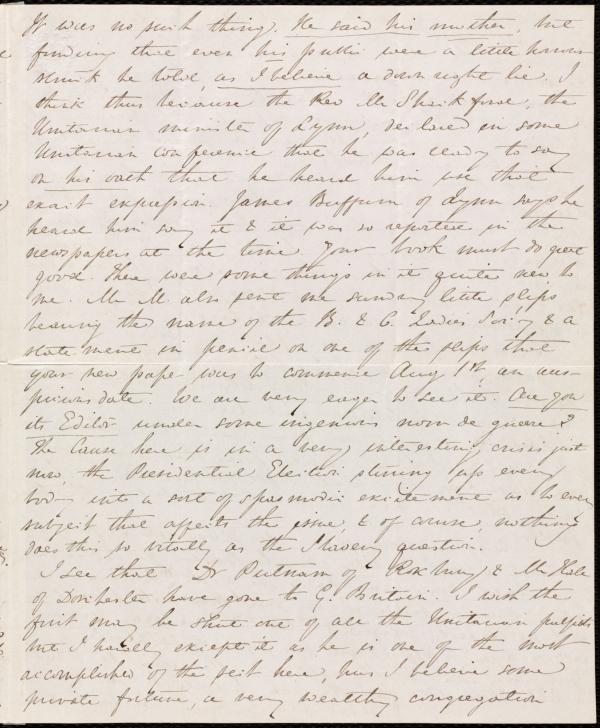 It was no such thing. He said his mother, but
finding that even his public were a little horror
struck he told, as I believe a downright lie. I
think thus because the Rev Mr Shackford, the
Unitarian minister of Lynn, declared in some
Unitarian conference that he was ready to say
on his oath that he heard him use that
exact expression. James Buffum of Lynn says he
heard him say it & it was so reported in the
newspapers at the time. Your book must do great
good. There were some things in it quite new to
me. Mr M. also sent me sundry little slips
bearing the name of the B. & C. Ladies Soc'y & a
statement in pencil on one of the slips that
your new paper was to commence Aug 1st, an aus-
picious date. We are very eager to see it. Are you
its Editor under some ingenious nom de guerre?
The Cause here is in a very interesting crisis just
now, the Presidential Election stirring up every
body into a sort of spasmodic excitement as to every
subject that affects the issue, & of course, nothing
does this so vitally as the Slavery question.
I see that Dr Putnam of Roxbury & Mr Hall
of Dorchester have gone to G. Britain. I wish the
first may be shut out of all the Unitarian pulpits
but I hardly expect it as he is one of the most
accomplished of the sect here, has I believe some
private fortune, a very wealthy congregation